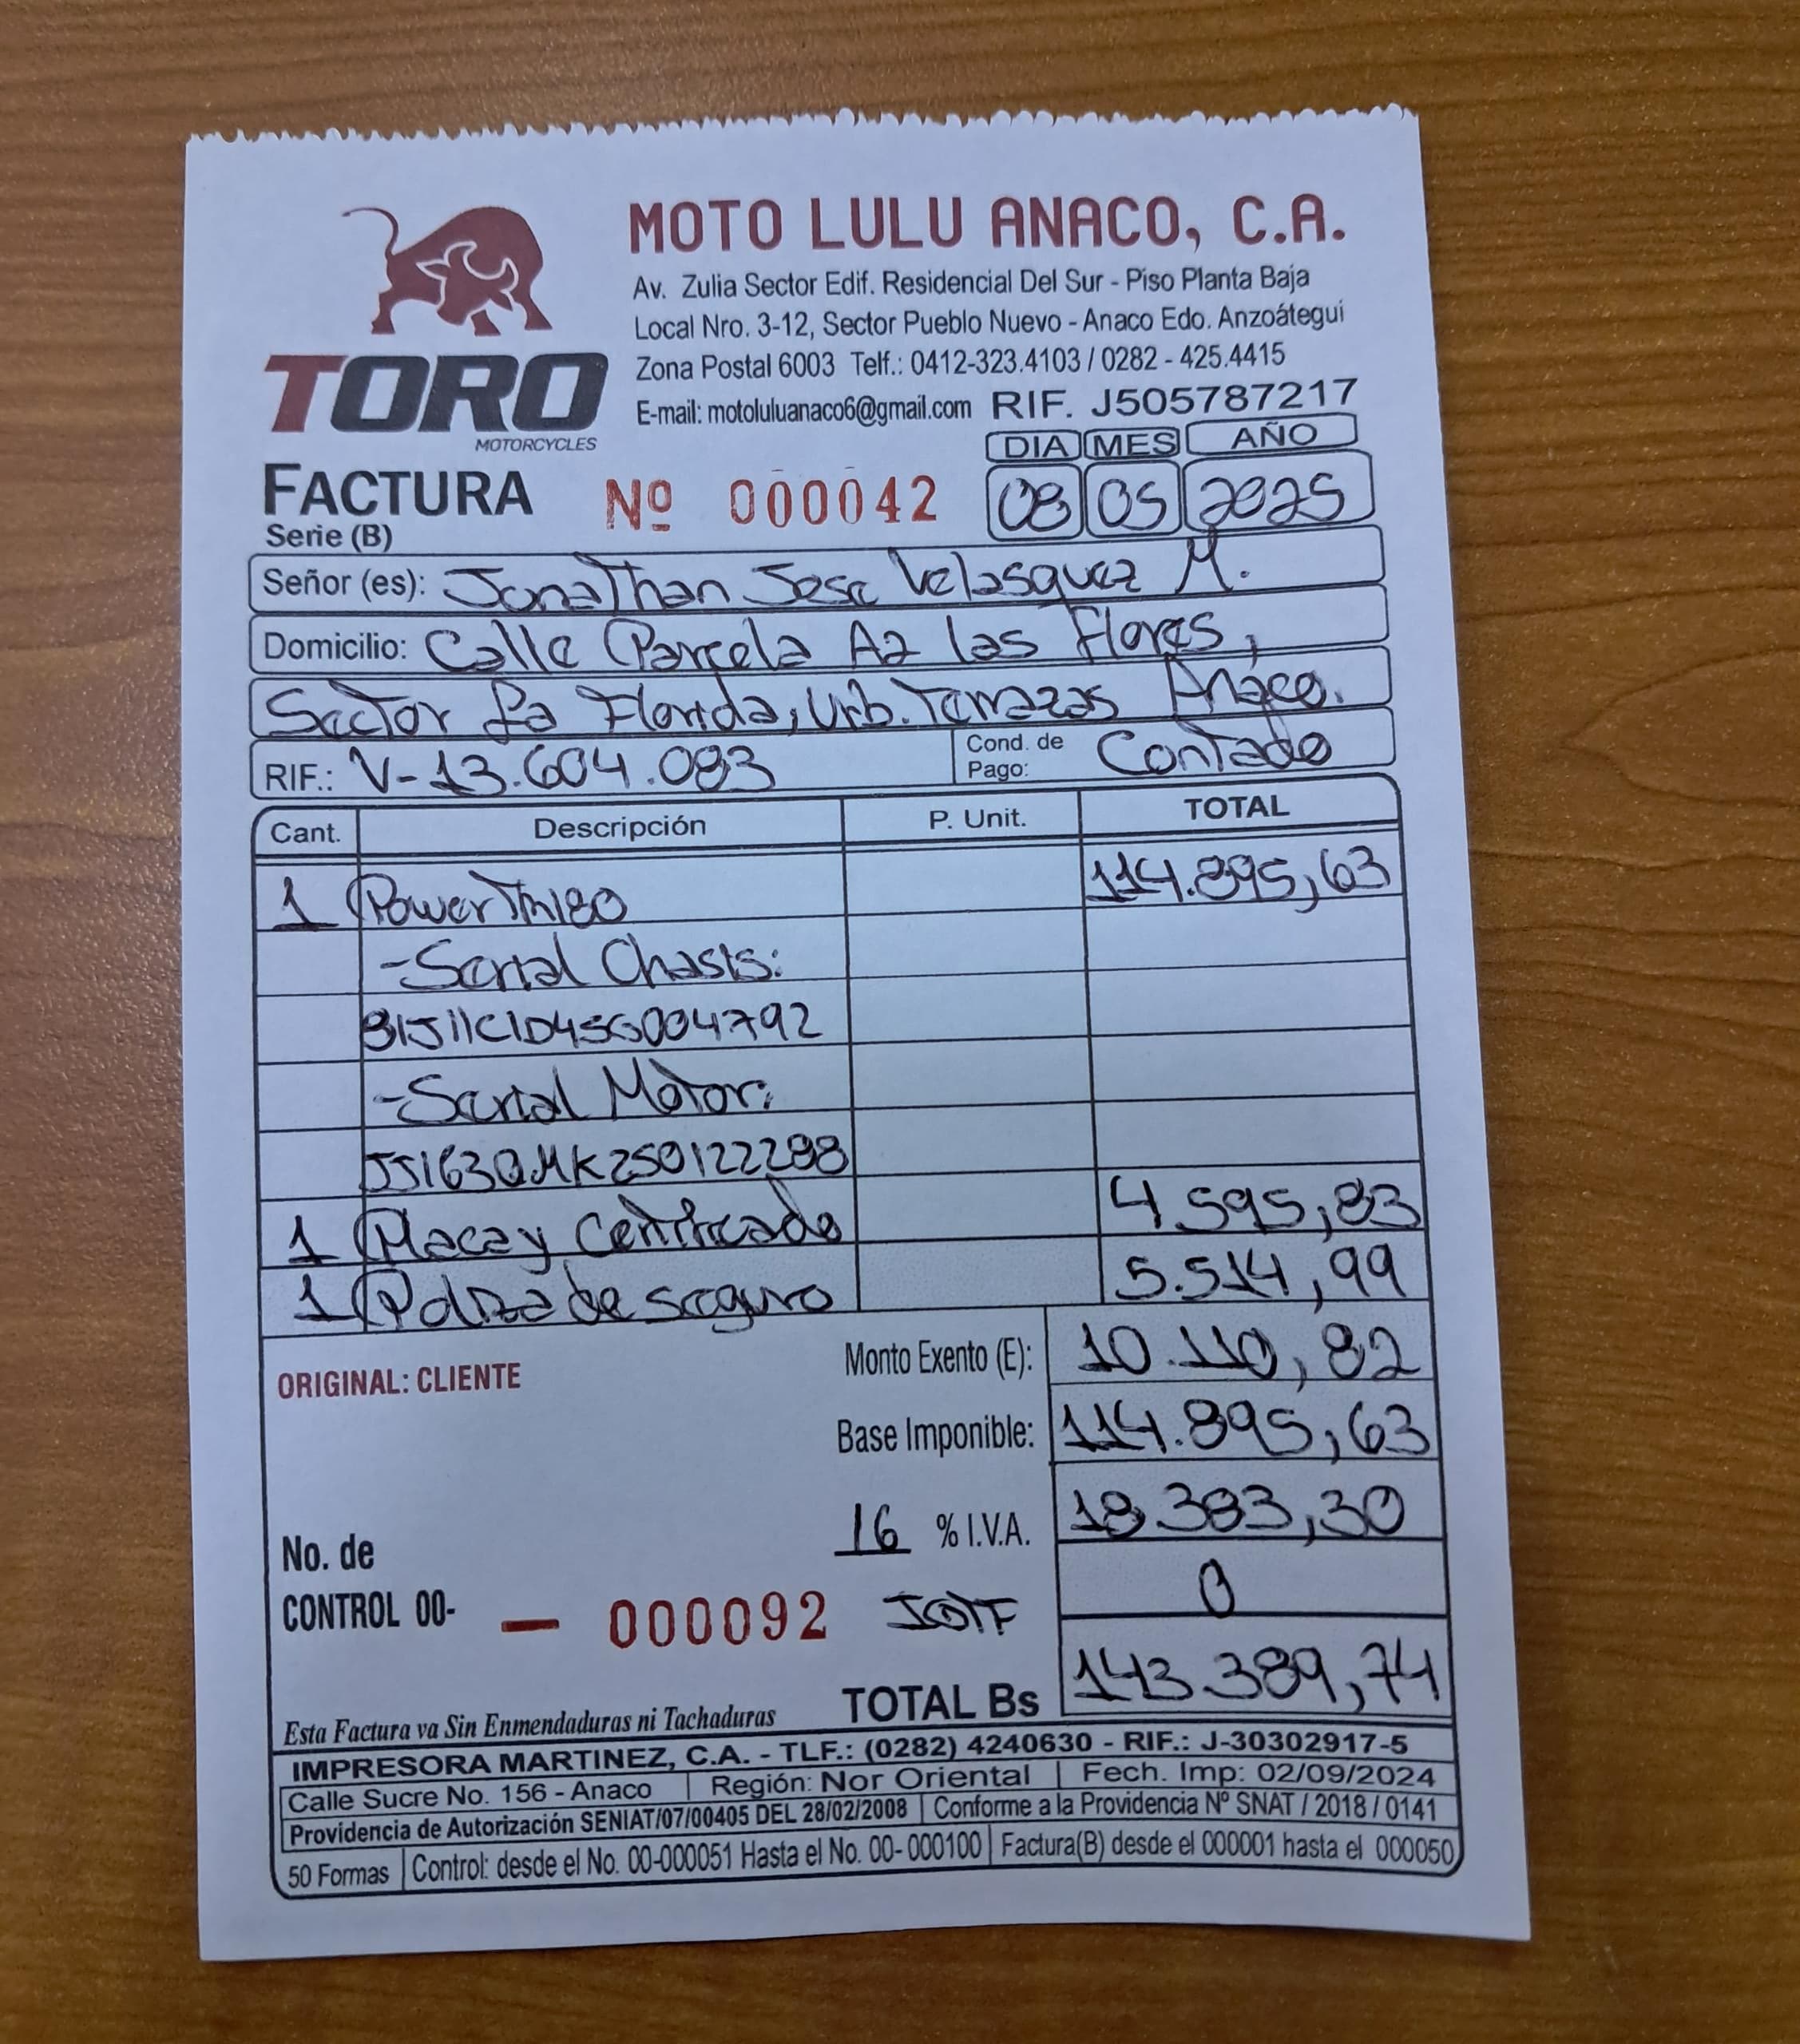 MOTO LULU ANACO, C.A.
Av. Zulia Sector Edif. Residencial Del Sur - Piso Planta Baja
Local Nro. 3-12, Sector Pueblo Nuevo - Anaco Edo. Anzoátegui
Zona Postal 6003 Telf.: 0412-323.4103 / 0282 - 425.4415
E-mail: motoluluanaco6@gmail.com RIF. J505787217
TORO
MOTORCYCLES
DIA MES AÑO
FACTURA Nº 000042 08 05 2025
Serie (B)
Señor (es): Jonathan Jose Velasquez M.
Domicilio: Calle Parcela A2 las Flores,
Sector La Florida, Urb. Terrazas Anaco.
RIF.: V-13.604.083 Cond. de Pago: Contado
Cant. Descripción P. Unit. TOTAL
1 Power Tm180 114.895,63
-Serial Chasis:
81J11C1D4SG004792
-Serial Motor:
JS163QMK250122298
1 Placa y Certificado 4.595,83
1 Poliza de seguro 5.514,99
Monto Exento (E): 10.110,82
ORIGINAL: CLIENTE
Base Imponible: 114.895,63
16 % I.V.A. 18.383,30
No. de
CONTROL 00- — 000092 IGTF 0
TOTAL Bs 143.389,74
Esta Factura va Sin Enmendaduras ni Tachaduras
IMPRESORA MARTINEZ, C.A. - TLF.: (0282) 4240630 - RIF.: J-30302917-5
Calle Sucre No. 156 - Anaco Región: Nor Oriental Fech. Imp: 02/09/2024
Providencia de Autorización SENIAT/07/00405 DEL 28/02/2008 Conforme a la Providencia Nº SNAT / 2018 / 0141
50 Formas Control: desde el No. 00-000051 Hasta el No. 00- 000100 Factura(B) desde el 000001 hasta el 000050